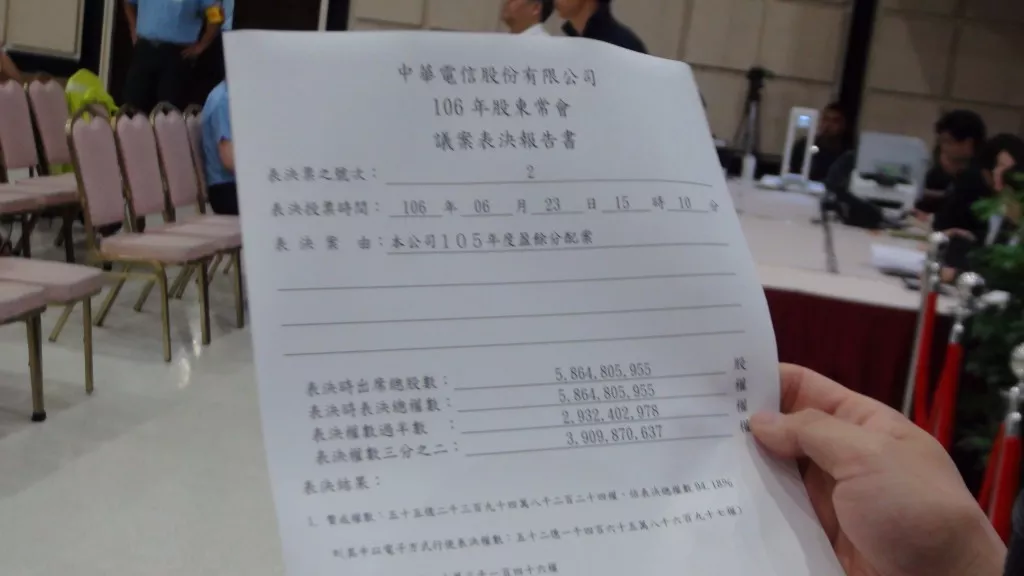 中華電信股份有限公司
106 年股東常會
議案表決報告書
表決票之號次： 2
表決投票時間： 106 年 06 月 23 日 15 時 10 分
表 決 案 由：本公司１０５年度盈餘分配案
表決時出席總股數： 5,864,805,955 股
表決時表決總權數： 5,864,805,955 權
表決權數過半數 ： 2,932,402,978 權
表決權數三分之二： 3,909,870,637 權
表決結果：
1. 贊成權數：五十五億二千三百九十四萬八千二百二十四權，佔表決總權數 94.18%
(其中以電子方式行使表決權數：五十二億一千四百六十五萬八千六百九十七權)
千一百四十六權